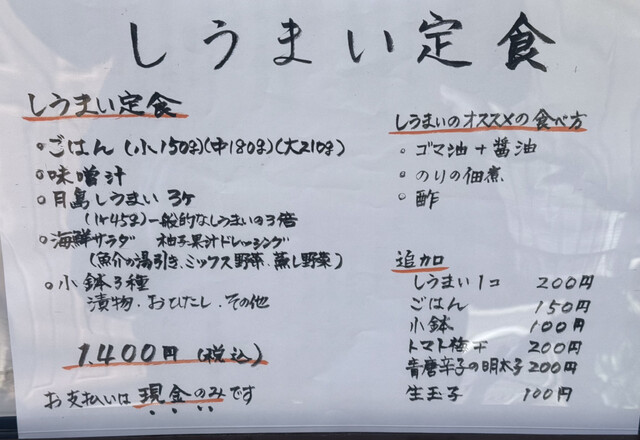 しうまい定食
しうまい定食
・ごはん(小150g)(中180g)(大210g)
・味噌汁
・月島しうまい 3ケ
(1ケ45g)一般的なしうまいの3倍
・海鮮サラダ 柚子果汁ドレッシング
(魚介の湯引き、ミックス野菜、蒸し野菜)
・小鉢3種
漬物・おひたし・その他
1,400円(税込)
お支払いは現金のみです
しうまいのオススメの食べ方
・ゴマ油+醬油
・のりの佃煮
・酢
追加
しうまい1コ 200円
ごはん 150円
小鉢 100円
トマト梅干 200円
青唐辛子の明太子 200円
生玉子 100円